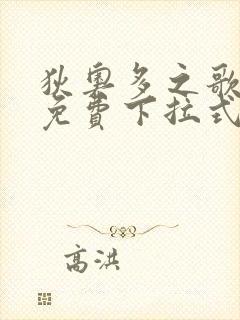 狄奥多之歌
免費下拉式
高洪